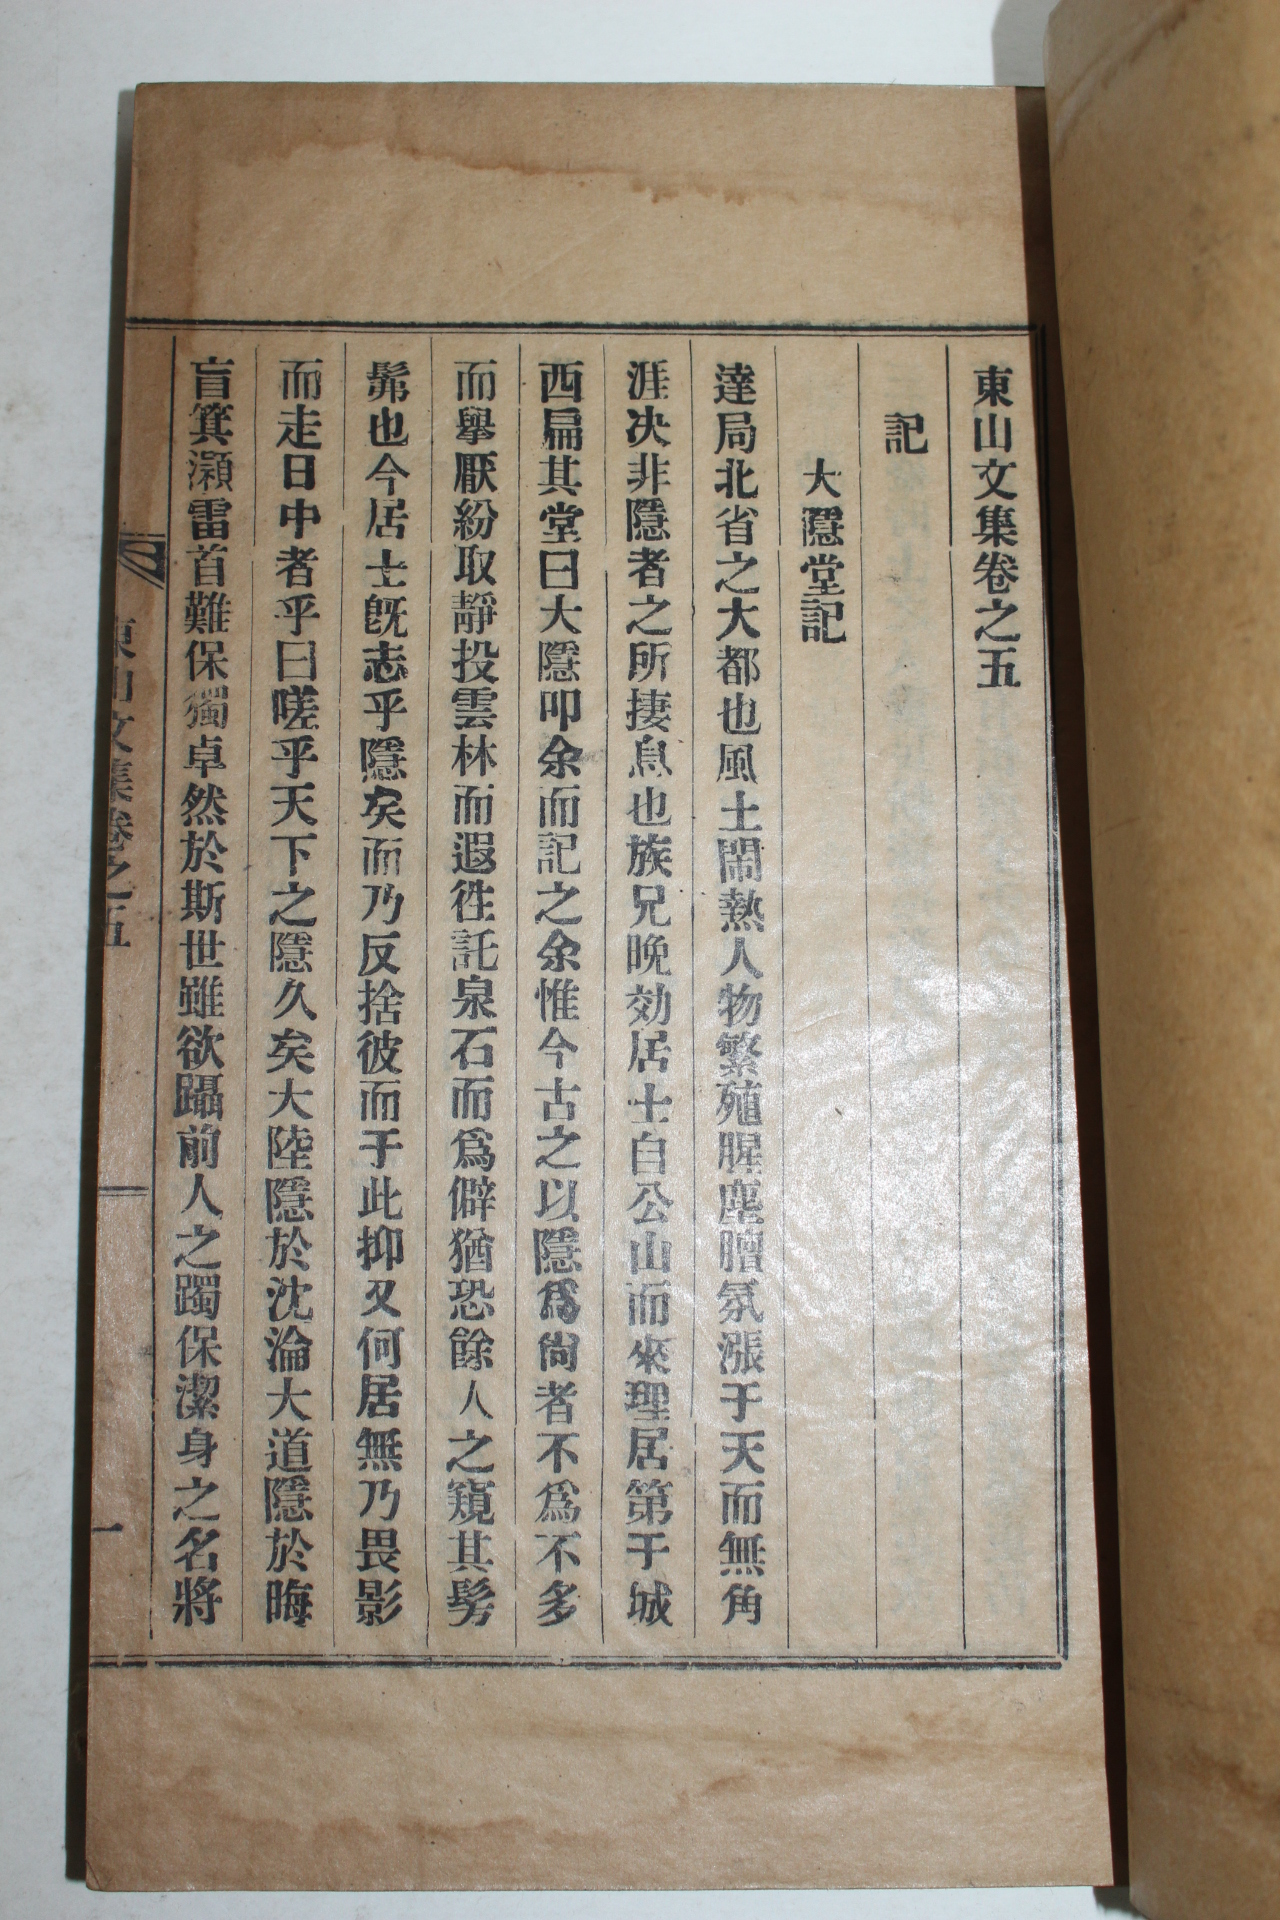 東山文集卷之五
記
大隱堂記
達局北省之大都也風土閙熱人物繁殖腥塵膻氛漲于天而無角
涯决非隱者之所捿息也族兄晩効居士自公山而來理居第于城
西扁其堂曰大隱叩余而記之余惟今古之以隱爲尙者不爲不多
而擧厭紛取靜投雲林而遐徃託泉石而爲僻猶恐餘人之窺其髣
髴也今居士旣志乎隱矣而乃反捨彼而于此抑又何居無乃畏影
而走日中者乎曰嗟乎天下之隱久矣大陸隱於沈淪大道隱於晦
盲箕瀕雷首難保獨卓然於斯世雖欲躡前人之躅保潔身之名將
東山文集卷之五
一